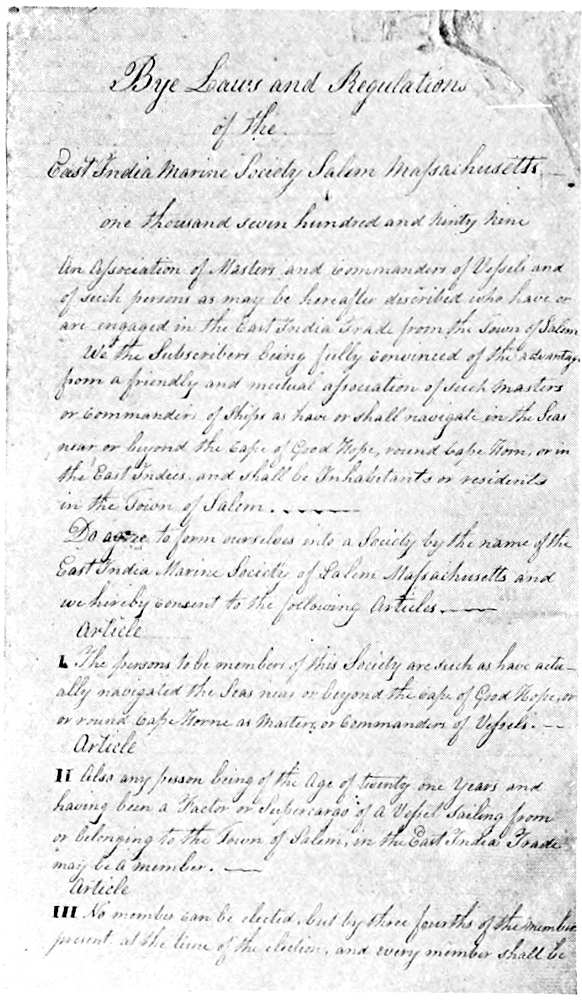 Bye Laws and Regulations
of the
East India Marine Society Salem Massachusetts
one thousand seven hundred and Ninty Nine
An Association of Masters and Commanders of Vessels and
of such persons as may be hereafter described who have or
are engaged in the East India Trade from the Town of Salem
We the Subscribers being fully convinced of the advantage
from a friendly and mutual association of such Masters
or Commanders of Ships as have or shall navigate in the Seas
near or beyond the Cape of Good Hope, round Cape Horn, or in
the East Indies, and shall be Inhabitants or residents
in the Town of Salem.
Do agree to form ourselves into a Society by the name of the
East India Marine Society of Salem Massachusetts and
we hereby consent to the following Articles.
Article
I. The persons to be members of this Society are such as have actu-
ally navigated the Seas near or beyond the Cape of Good Hope, or
or round Cape Horne as Masters, or Commanders of Vessels.
Article
II Also any person being of the Age of twenty one Years and
having been a Factor or Supercargo of a Vessel sailing from
or belonging to the Town of Salem, in the East India Trade
may be a member.
Article
III No member can be elected, but by three fourths of the members
present at the time of the election, and every member shall be